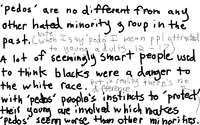 'pedos' are no different from any
other hated minority group in the
past. (when I say 'pedo' I mean ppl attracted
to young adults 12-17)
A lot of seemingly smart people used
to think blacks were a danger to
the white race. but in reality there's no
difference
with 'pedos' people's instincts to 'protect'
their young are involved which makes
'pedos' seem worse than other minorities.